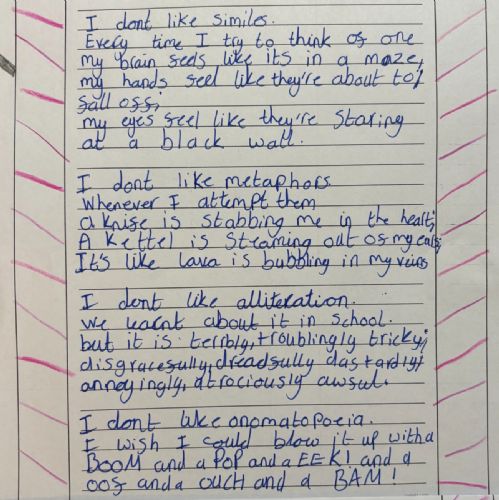 I dont like similes.
Every time I try to think of one
my brain feels like its in a maze,
my hands feel like they're about to
fall off;
my eyes feel like they're staring
at a black wall.
I dont like metaphors.
Whenever I attempt them
a knife is stabbing me in the heart;
A kettel is steaming out of my ears;
It's like lava is bubbling in my veins
I dont like alliteration.
we learnt about it in school.
but it is terribly, troublingly tricky;
disgracefully, dreadfully dastardly,
annoyingly, atrociously awful.
I dont like onomatopoeia.
I wish I could blow it up with a
BOOM and a POP and a EEK! and a
oof and a OUCH and a BAM!